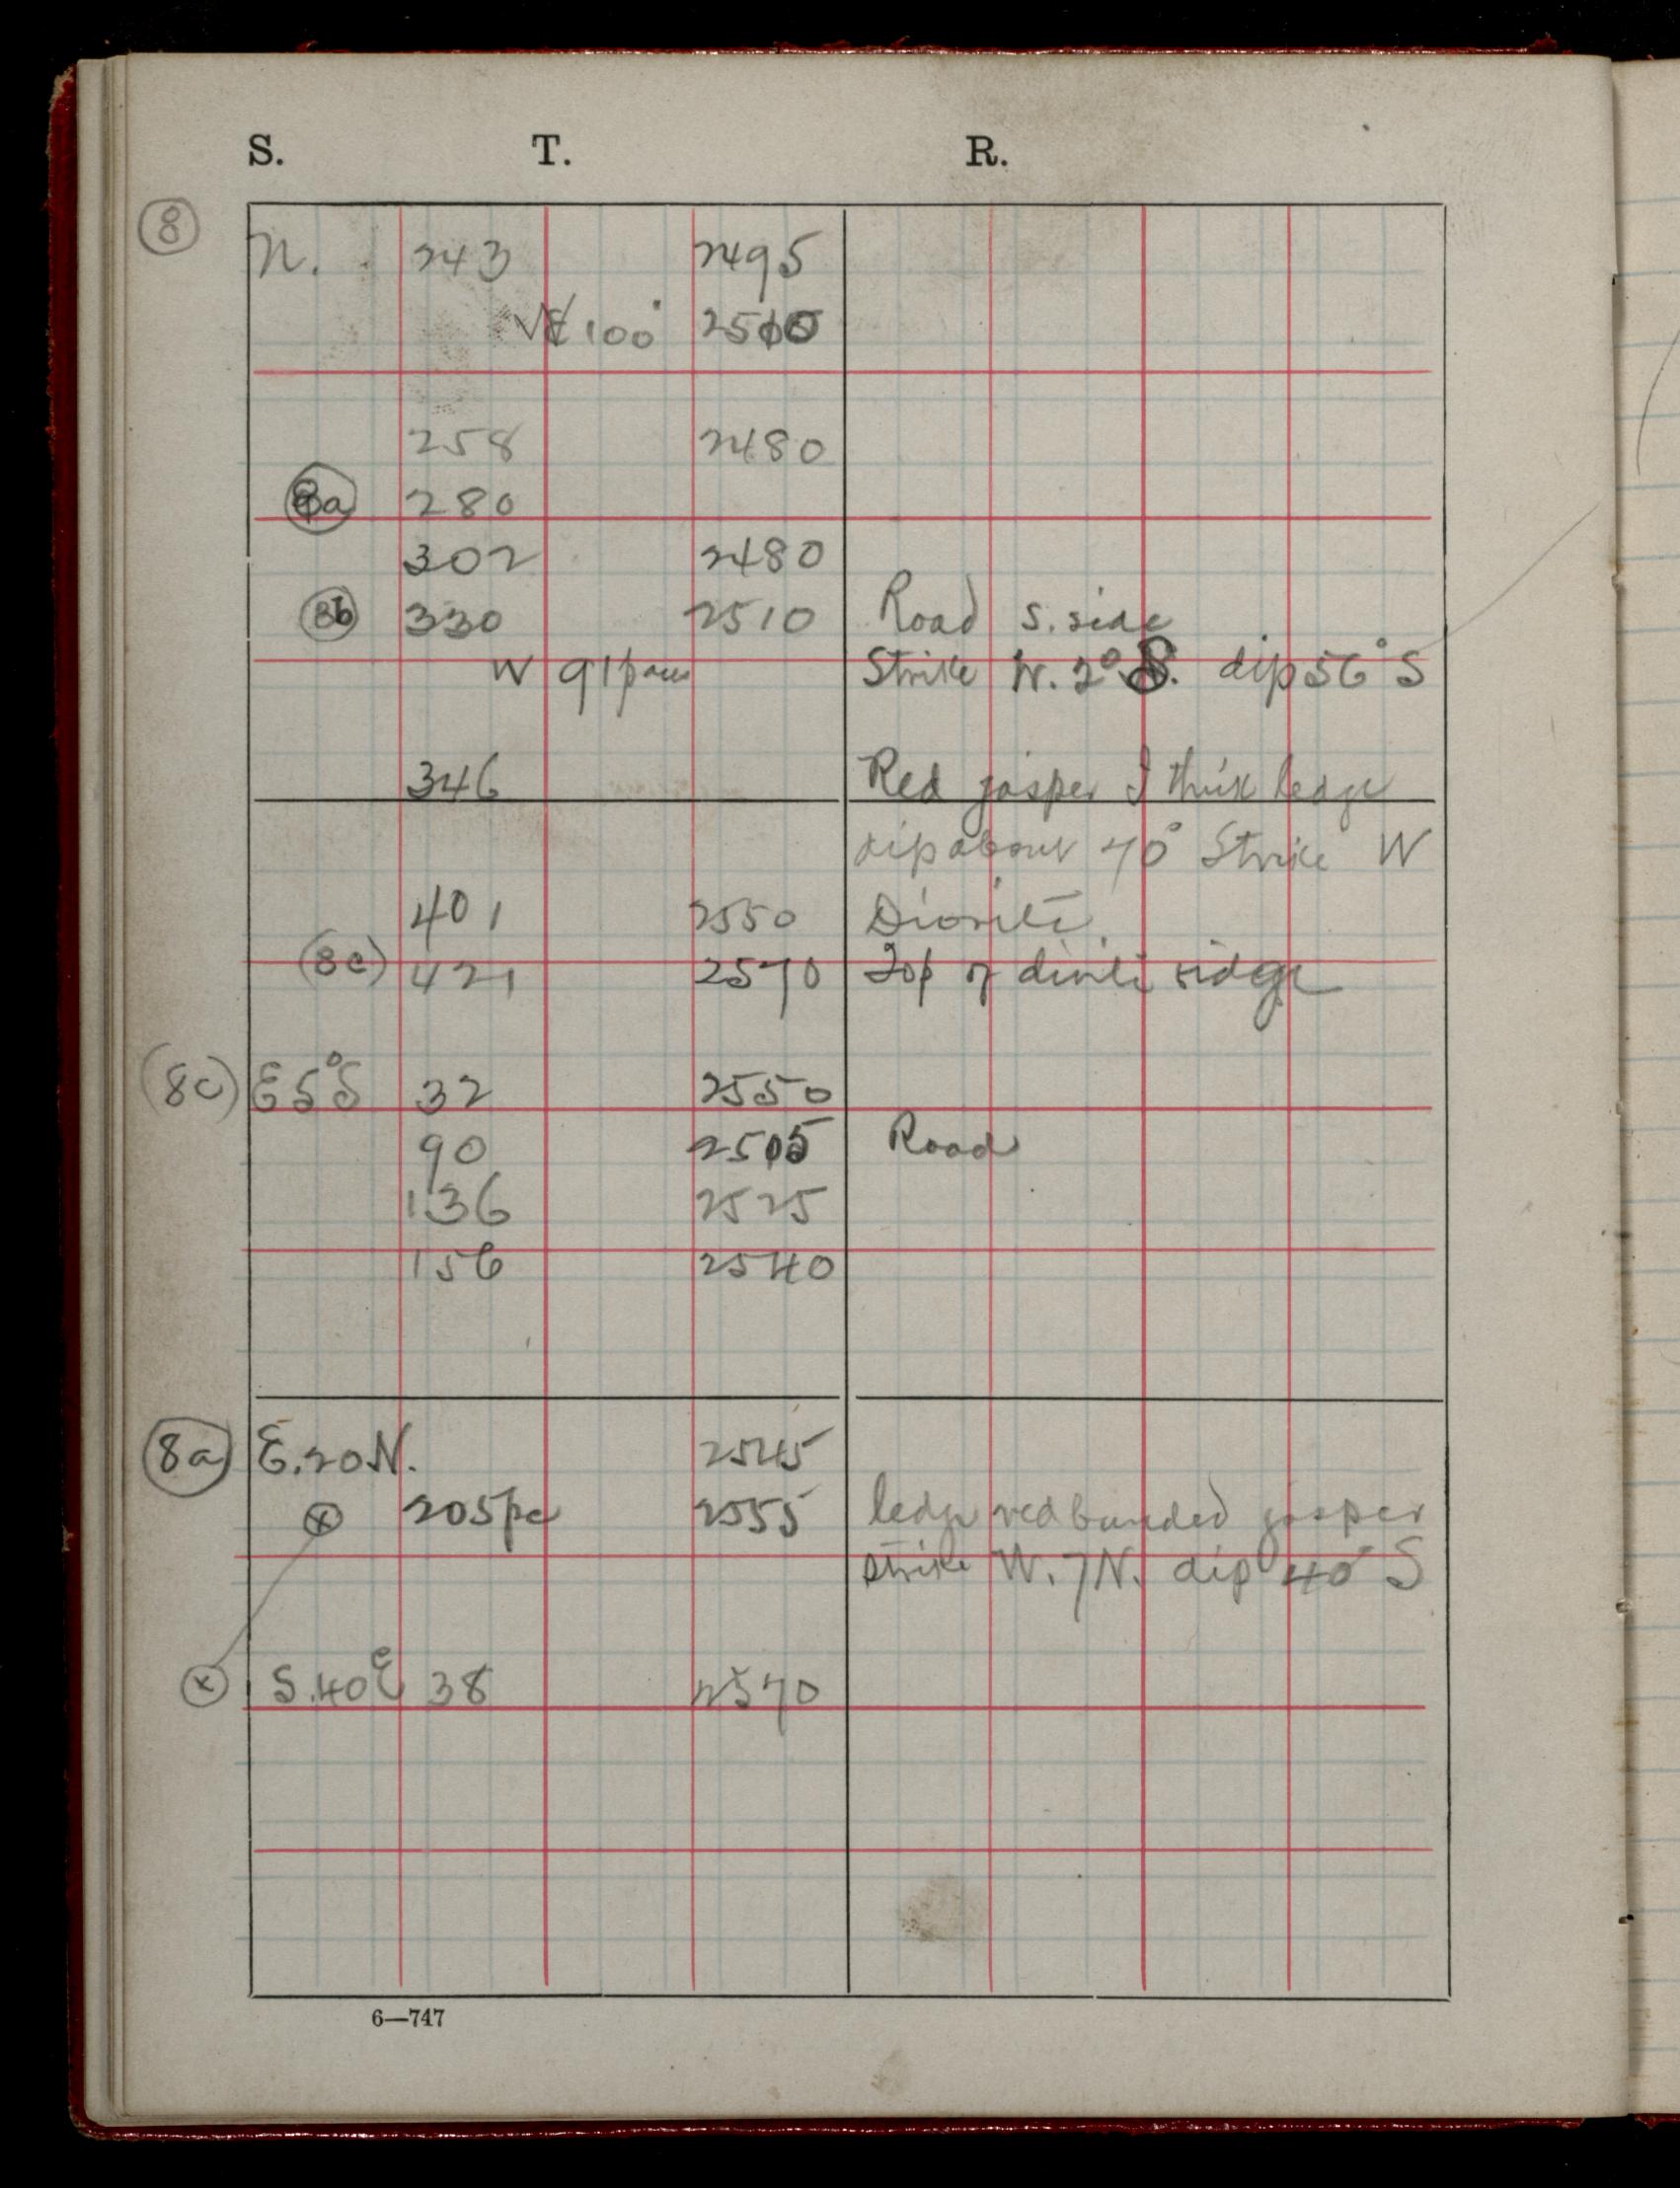 S. T. R.
8 N. 243 2495
100° 2510
258 2480
8a 280
302 2480
8b 330 2510 Road S. side
W 91 paces Strike W. 2° S. dip 56° S
346 Red jasper I think ledge
dip about 70° Strike W
401 2550 Diorite
(8c) 421 2570 Top of ridge
(8c) E 5° S 32 2550
90 2505 Road
136 2525
156 2540
8a E. 20 N. 2545
x 205 pc 2555 ledge red banded jasper
strike W. 7 N. dip 40° S
x S. 40 E 38 2570
6—747